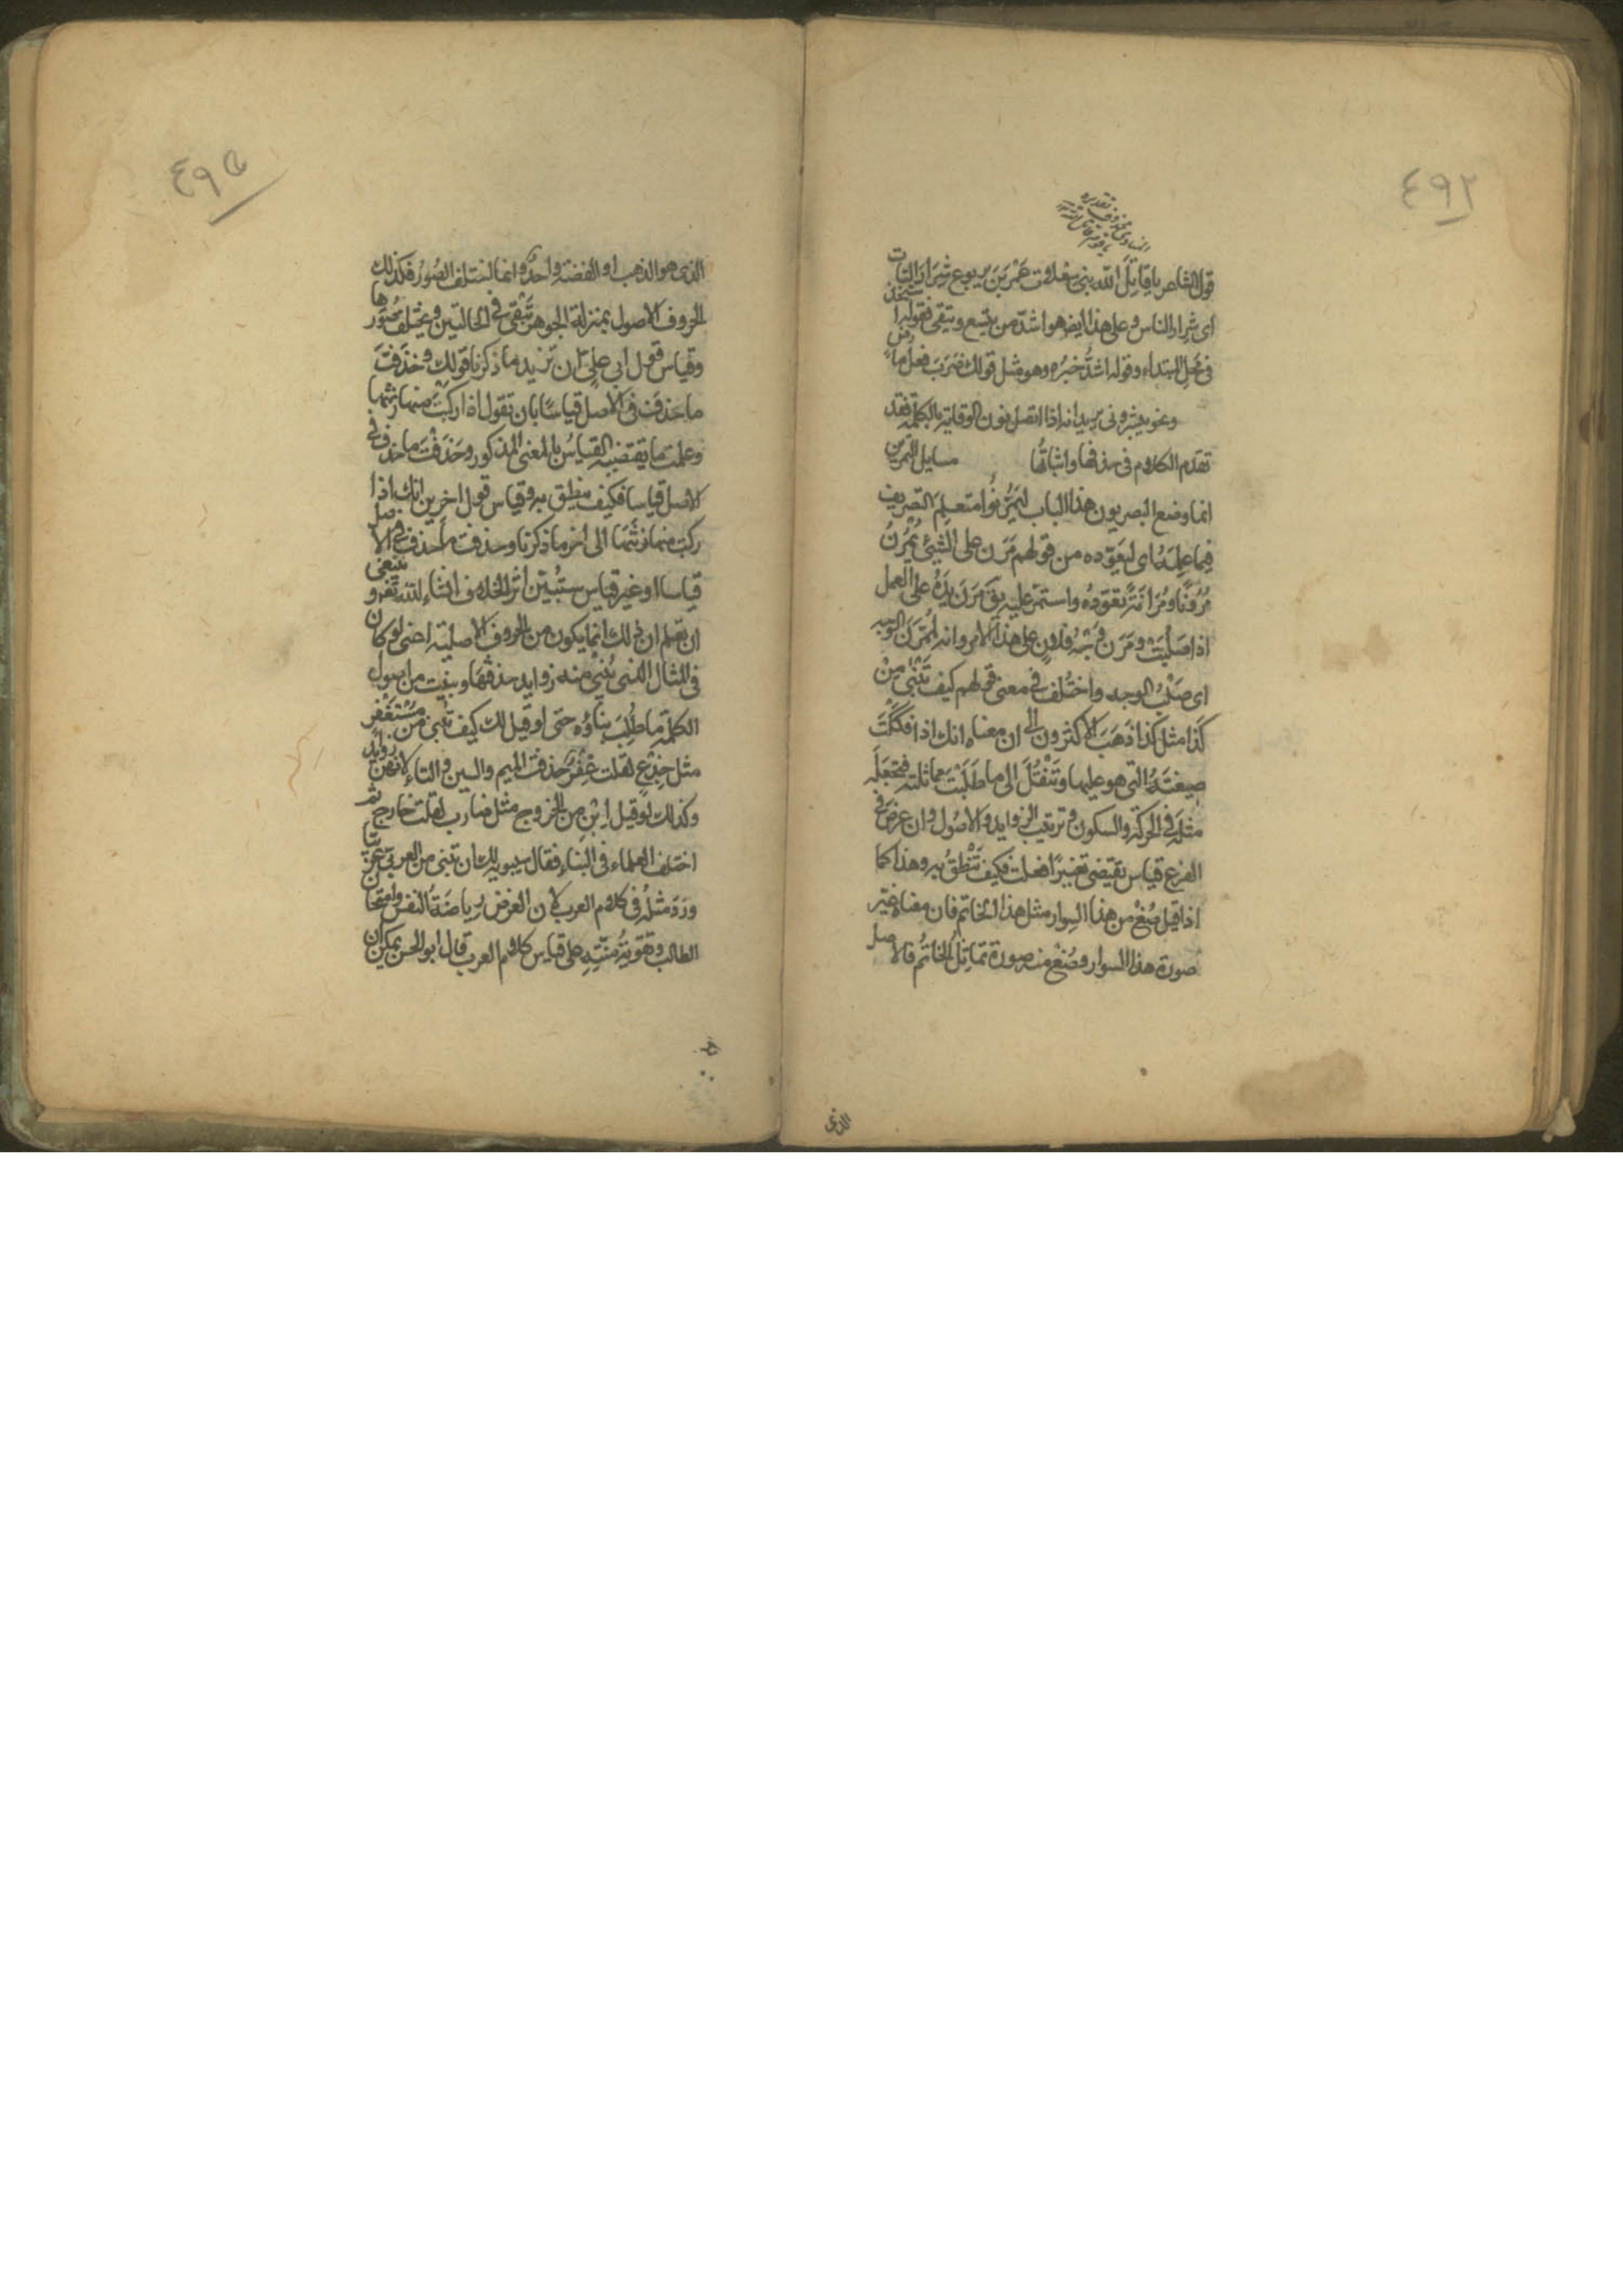 ٤٩٢
قول الشاعر يا قاتل الله بنى سعلات عمر بن يربوع شرار النات
اى شرار الناس وعلى هذا ايضا هو اشذ من يتسع ويتقى فقوله استخذ
فى محل المبتداء وقوله اشذ خبره وهو مثل قولك ضرب فعل ماض
ونحو يبشرونى يريد انه اذا اتصل نون الوقاية بالكلمة فقد
تقدم الكلام فى حذفها واثباتها مسايل التمرين
انما وضع البصريون هذا الباب ليمرنوا متعلم التصريف
فيما علمه اى ليعوده من قولهم مرن على الشئ يمرن
مرونا ومرانة تعوده واستمر عليه يق مرن يده على العمل
اذا صلبت ومرن وجه فلان على هذا الامر وانه لممرن الوجه
اى صلب الوجه واختلف فى معنى قولهم كيف تبنى من
كذا مثل كذا ذهب الاكثرون الى ان معناه انك اذا فككت
صيغته التى هو عليها وتنقل الى ما طلبت مماثلته فتجعله
مثله فى الحركة والسكون وترتيب الزوايد والاصول وان عرض فى
الفرع قياس يقتضى تغييرا فعلت فكيف تنطق به وهذا كما
اذا قيل صغ من هذا السوار مثل هذا الخاتم فان معناه غير
صورة هذا السوار وصغ منه صورة تماثل الخاتم فالاصل
الذى
٤٩٥
الذى هو الذهب او الفضة واحد وانما تختلف الصور فكذلك
الحروف الاصول بمنزلة الجوهر تبقى فى الحالتين ويختلف صورها
وقياس قول ابى على ان تزيد ما ذكرنا قولك وحذفت
ما حذفت فى الاصل قياسا بان تقول اذا ركبت منها زنتها
وعملت ما يقتضيه القياس بالمعنى المذكور وحذفت ما حذف فى
الاصل قياسا فكيف تنطق به وقياس قول اخرين انك اذا
ركبت منها زنتها الى اخر ما ذكرنا وحذفت ما حذف فى الاصل
قياسا او غير قياس ستبين اثر الخلاف انشاء الله تعم وينبغى
ان تعلم ان ذلك انما يكون من الحروف الاصلية اعنى لو كان
فى المثال الذى يبنى منه زوايد حذفتها وبنيت من اصول
الكلمة ما طلب بناؤه حتى لو قيل لك كيف تبنى من مستغفر
مثل جذع لقلت غفر حذفت الميم والسين والتاء لانهن زوايد
وكذلك لو قيل ابن من الخروج مثل ضارب لقلت خارج ثم
اختلف العلماء فى البناء فقال سيبويه لك ان تبنى من العربى عربيا
ورد مثله فى كلام العرب لان الغرض رياضة النفس وامتحان
الطالب وتقوية منته على قياس كلام العرب قال ابو الحسن يمكن ان